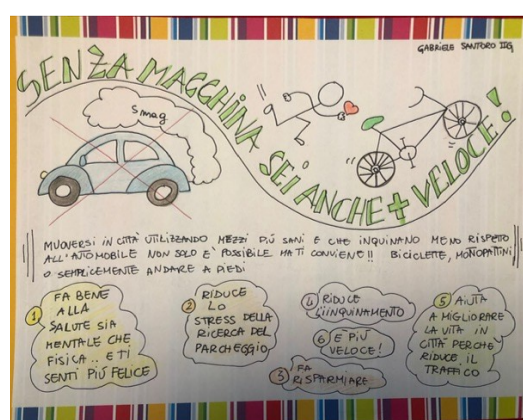 GABRIELE SANTORO IIG
SENZA MACCHINA SEI ANCHE + VELOCE!
Smog
MUOVERSI IN CITTÀ UTILIZZANDO MEZZI PIÚ SANI E CHE INQUINANO MENO RISPETO
ALL'AUTOMOBILE NON SOLO E' POSSIBILE MA TI CONVIENE!! BICICLETTE, MONOPATTINI
O SEMPLICEMENTE ANDARE A PIEDI
1 FA BENE
ALLA
SALUTE SIA
MENTALE CHE
FISICA.. E TI
SENTI PIÚ FELICE
2 RIDUCE
LO
STRESS DELLA
RICERCA DEL
PARCHEGGIO
4 RIDUCE
L'INQUINAMENTO
6 È PIÙ
VELOCE!
3 FA
RISPARMIARE
5 AIUTA
A MIGLIORARE
LA VITA IN
CITTÀ PERCHÈ
RIDUCE IL
TRAFFICO